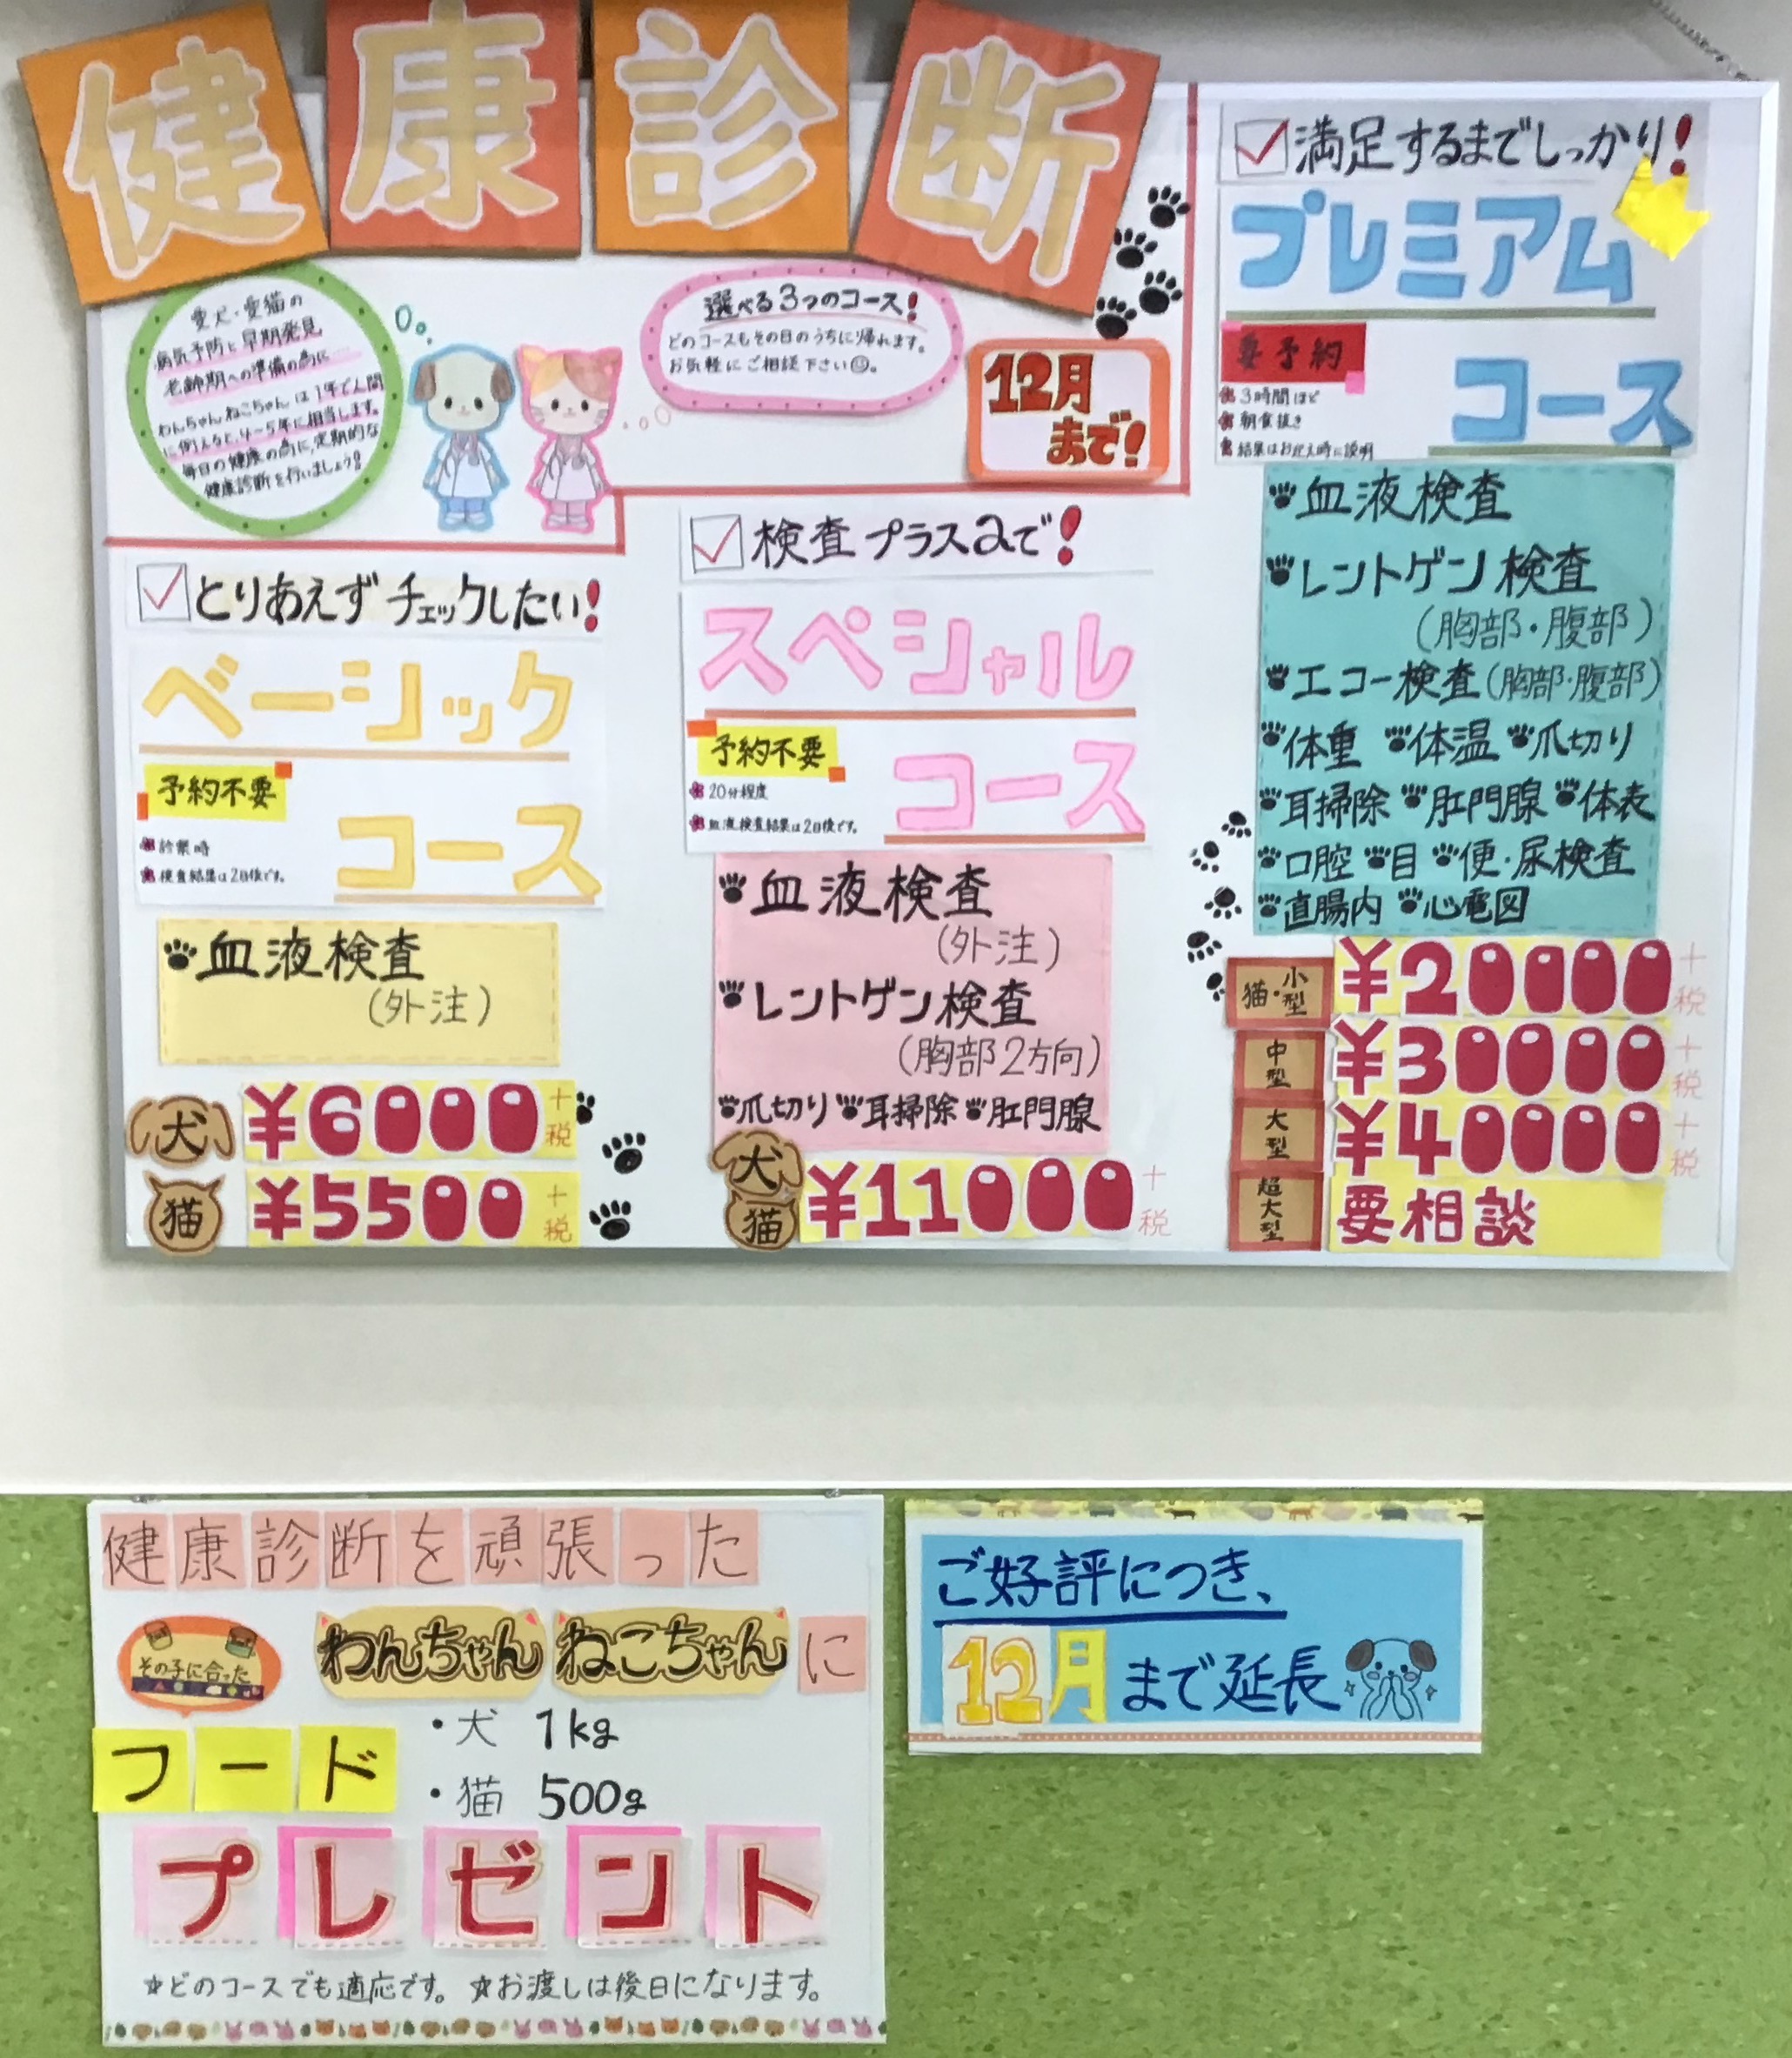 健康診断
愛犬・愛猫の
病気予防と早期発見
老齢期への準備の為に…
わんちゃんねこちゃんは1年で人間
に例えると、4~5年に相当します。
毎日の健康の為に、定期的な
健康診断を行いましょう!!
選べる3つのコース!
どのコースもその日のうちに帰れます。
お気軽にご相談下さい☺。
12月
まで!
とりあえずチェックしたい!
ベーシック
コース
予約不要
診察時
検査結果は2日後です。
血液検査
(外注)
犬 ¥6000+税
猫 ¥5500+税
検査プラスαで!
スペシャル
コース
予約不要
20分程度
血液検査結果は2日後です。
血液検査
(外注)
レントゲン検査
(胸部2方向)
爪切り 耳掃除 肛門腺
犬
猫
¥11000+税
満足するまでしっかり!
プレミアム
コース
要予約
3時間ほど
朝食抜き
結果はお迎え時に説明
血液検査
レントゲン検査
(胸部・腹部)
エコー検査(胸部・腹部)
体重 体温 爪切り
耳掃除 肛門腺 体表
口腔 目 便・尿検査
直腸内 心電図
猫・小型 ¥20000+税
中型 ¥30000+税
大型 ¥40000+税
超大型 要相談
健康診断を頑張った
わんちゃん ねこちゃん に
その子に合った
フード
・犬 1kg
・猫 500g
プレゼント
☆どのコースでも適応です。 ☆お渡しは後日になります。
ご好評につき、
12月まで延長